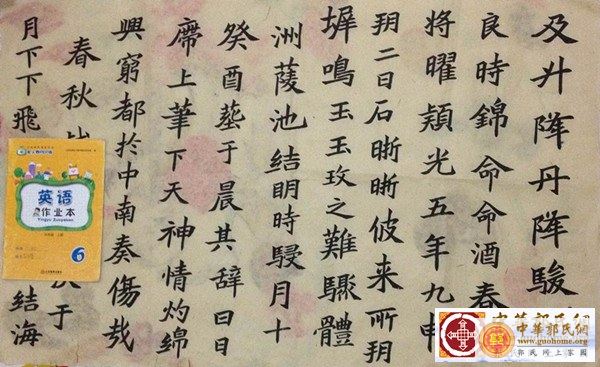 及廾丹駿
良時錦命命酒春
将曜穎光五年九申
玥二日石晣晣佊来所玥
墀鳴玉玉玫之難驟體
洲蓤池結明時月十
癸酉塟于晨其辞曰日
席上筆下天神情灼绵
興窮都扵中南奏傷哉
春秋于
月下下飛结海
英语
作业本
Yingyu Zuoyeben
6
中華郭氏網
www.guohome.org
郭氏网上家園